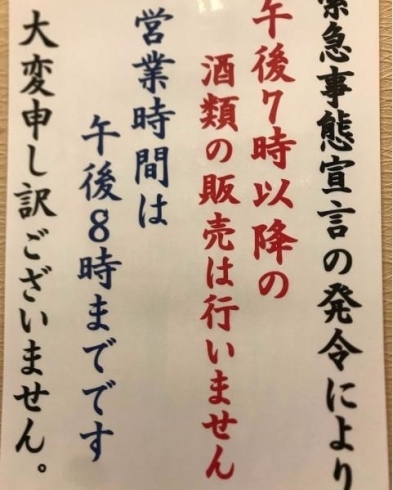 緊急事態宣言の発令により
午後7時以降の
酒類の販売は行いません
営業時間は
午後8時までです
大変申し訳ございません。